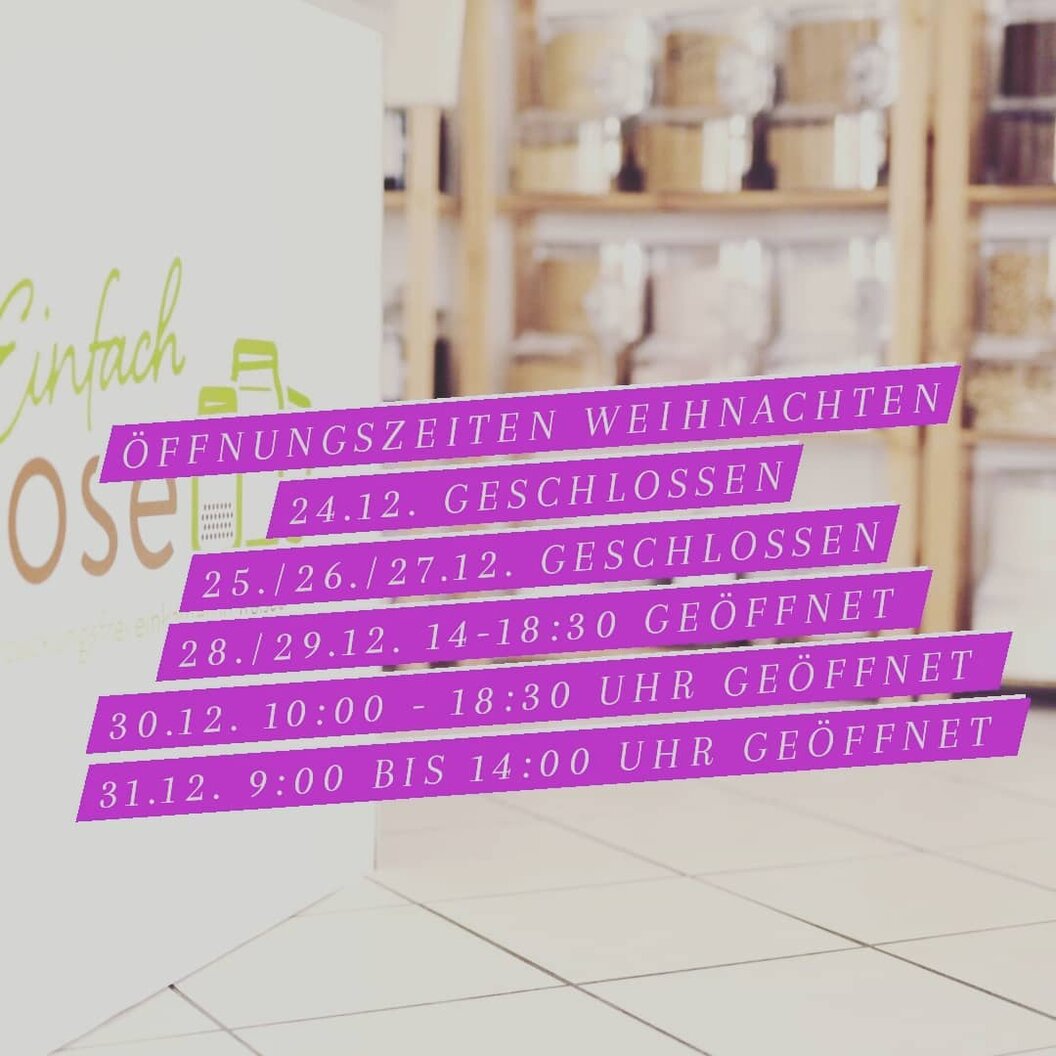 Einfach
ÖFFNUNGSZEITEN WEIHNACHTEN
24.12. GESCHLOSSEN
25./26./27.12. GESCHLOSSEN
28./29.12. 14-18:30 GEÖFFNET
30.12. 10:00 - 18:30 UHR GEÖFFNET
31.12. 9:00 BIS 14:00 UHR GEÖFFNET
ose